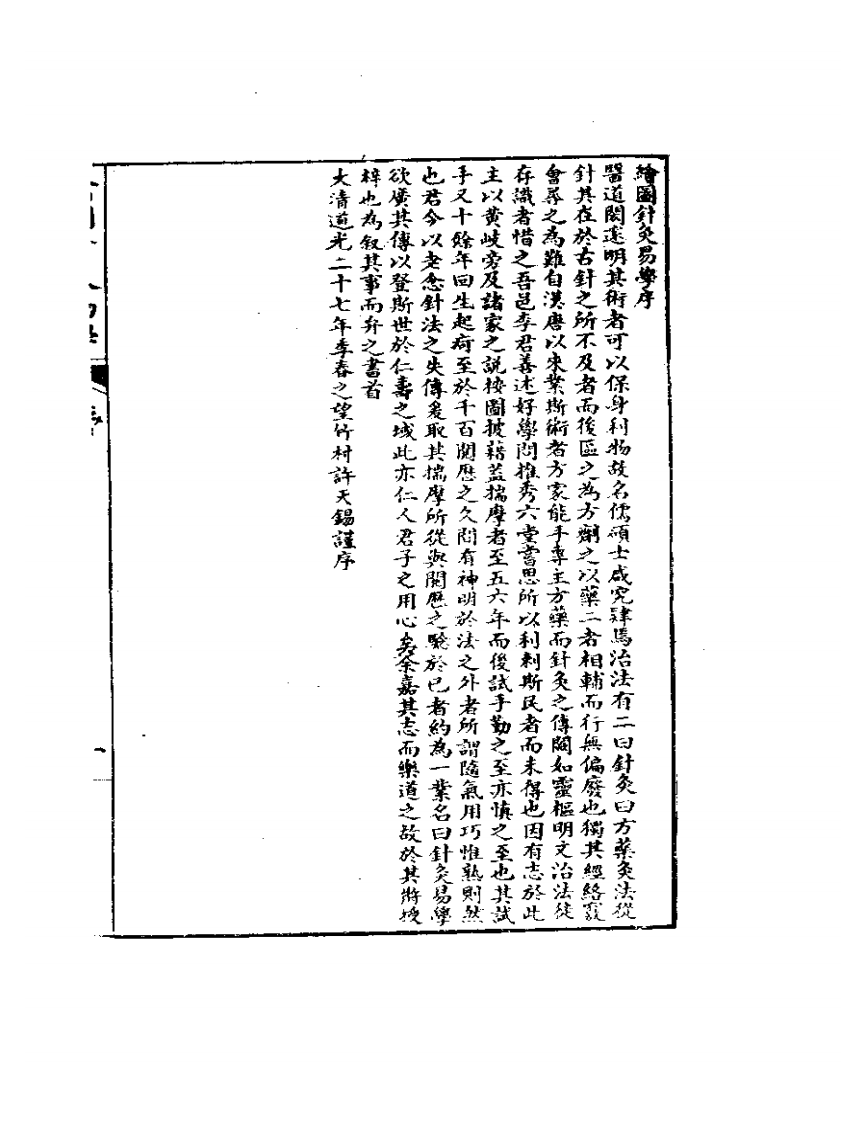 繪圖針灸易學序
醫道閎遠明其術者可以保身利物故名儒碩士咸究肄焉治法有二曰針灸曰方藥灸法從
針其在於古針之所不及者而後區之為方劑之以藥二者相輔而行無偏廢也獨其經絡竅
會尋之為難自漢唐以來業斯術者方家能手專主方藥而針灸之傳闕如靈樞明文治法徒
存識者惜之吾邑李君善述好學問推秀六堂嘗思所以利利斯民者而未得也因有志於此
主以黄岐旁及諸家之説按圖披藉葢揣摩者至五六年而後試手勤之至亦慎之至也其試
手又十餘年回生起疴至於千百閱歷之久間有神明於法之外者所謂隨氣用巧惟熟則然
也君今以老念針法之失傳爰取其揣摩所從與閱歷之驗於已者約為一業名曰針灸易學
欲廣其傳以登斯世於仁壽之域此亦仁人君子之用心矣余嘉其志而樂道之故於其將授
梓也為叙其事而弁之書首
大清道光二十七年季春之望竹村許天錫謹序